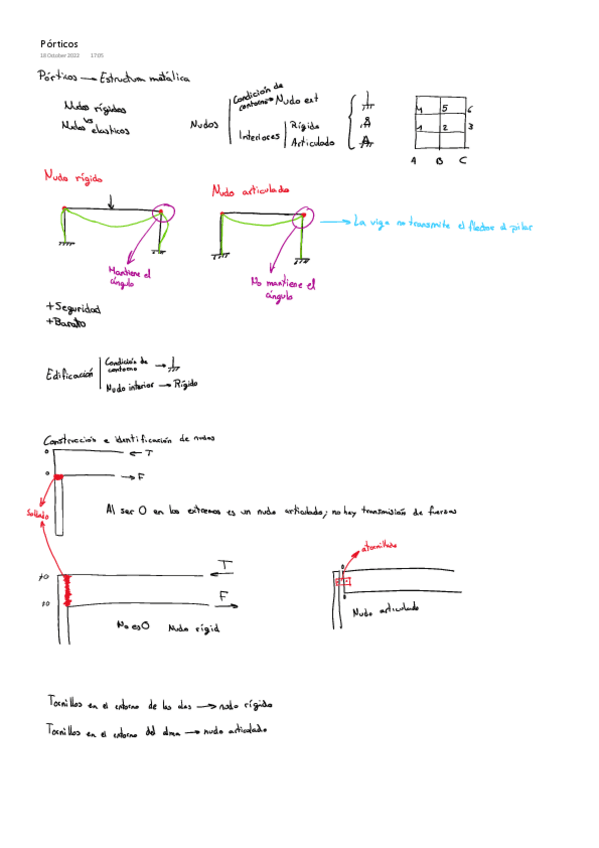 Pórticos
18 October 2022 17:05
Pórticos → Estructura metálica
Nudos rígidos
vs
Nudos elasticos
Nudos
Condición de
contorno → Nudo ext
Interiores
Rígido
Articulado
4 5 6
1 2 3
A B C
Nudo rígido
Mantiene el
ángulo
Nudo articulado
No mantiene el
ángulo
→ La viga no transmite el flector al pilar
+ Seguridad
+ Barato
Edificación
Condición de
contorno →
Nudo interior → Rígido
Construcción e identificación de nudos
0 ← T
0 → F
Soldado
Al ser 0 en los extremos es un nudo articulado; no hay transmisión de fuerzas
≠0 T
≠0 F
No es 0 Nudo rígid
atornillado
0
0
Nudo articulado
Tornillos en el entorno de las alas → nudo rígido
Tornillos en el entorno del alma → nudo articulado